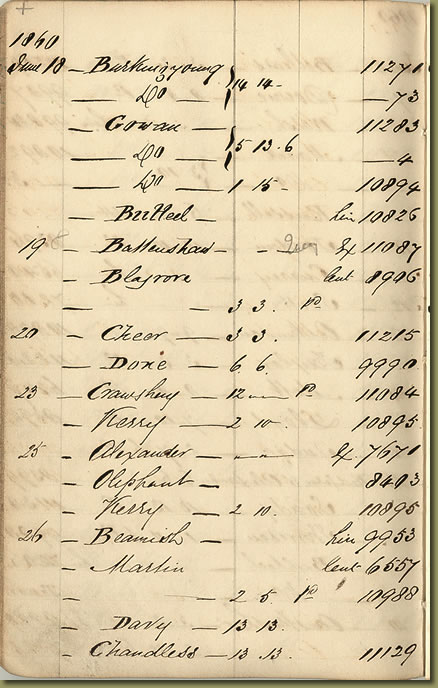 1860
June 18 — Burkinyoung 14 14 - 11271
— Do — — 73
— Gowan — 15 13 . 6 11283
— Do — — 4
— Do — 1 15 - 10894
— Butteel — hire 10826
19 — Battenshaw - - Ex 11087
— Blagrove lent 8906
— 3 3 . pd
20 — Cheer — 3 3 . 11215
— Done — 6 6 . 9990
23 — Crawshay — 12 — pd 11084
— Kerry — 2 10 . 10895
25 — Alexander — — Ex 7671
— Oliphant — 8403
— Kerry — 2 10 . 10895
26 — Beamish — hire 9953
— Martin lent 6557
— 2 5 . pd 10988
— Davy — 13 13 .
— Chandless — 13 13 . 11129